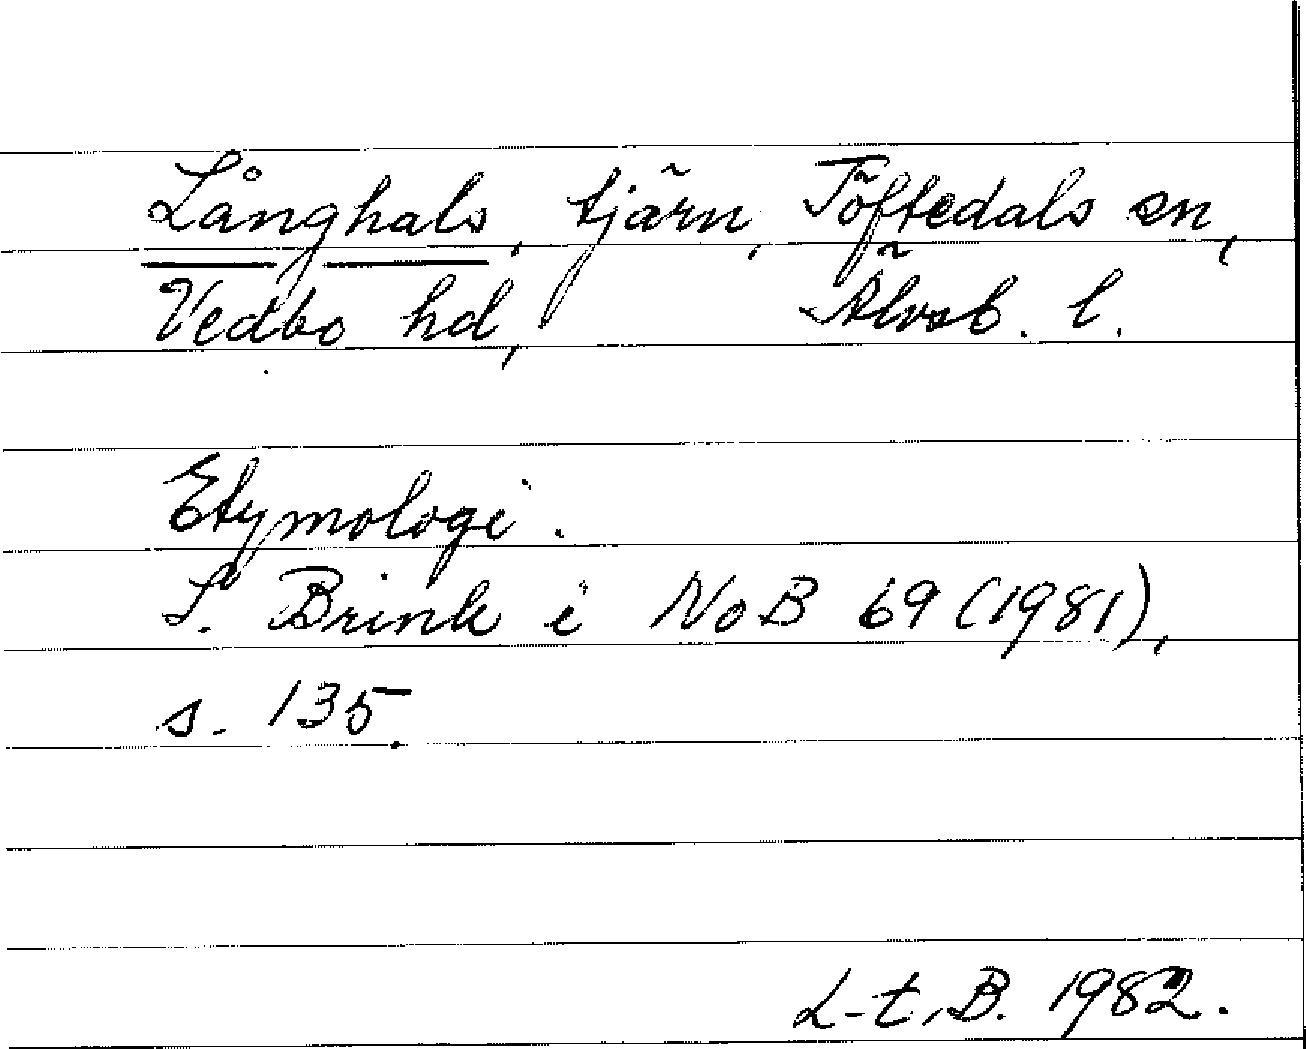 Långhals, tjärn, Töftedals sn,
Vedbo hd, Älvsb. l.
Etymologi.
S. Brink i NoB 69 (1981),
s. 135.
L-t, B. 1982.